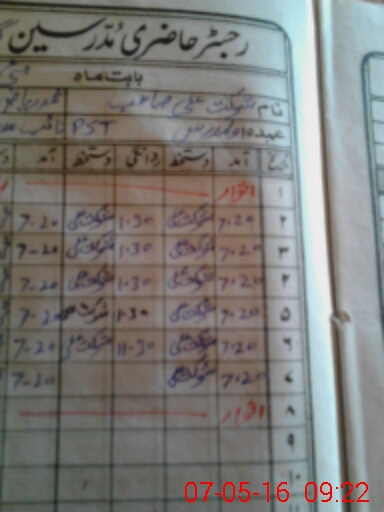 رجسٹر حاضری مُدّرسین
بابت ماہ
نام شوکت علی صاحب
عہدہ مدرس PST نائب
تاریخ آمد دستخط روانگی دستخط آمد
۱ اتوار
۲ 7.20 شوکت علی 1.30 شوکت علی 7-20
۳ 7.20 شوکت علی 1.30 شوکت علی 7-20
۴ 7.20 شوکت علی 1.30 شوکت علی 7-20
۵ 7.20 شوکت علی 1.30 شوکت علی 7-20
۶ 7.20 شوکت علی 11.30 شوکت علی 7-20
۷ 7.20 شوکت علی 7-20
۸ اتوار
۹
۱۰
07-05-16 09:22